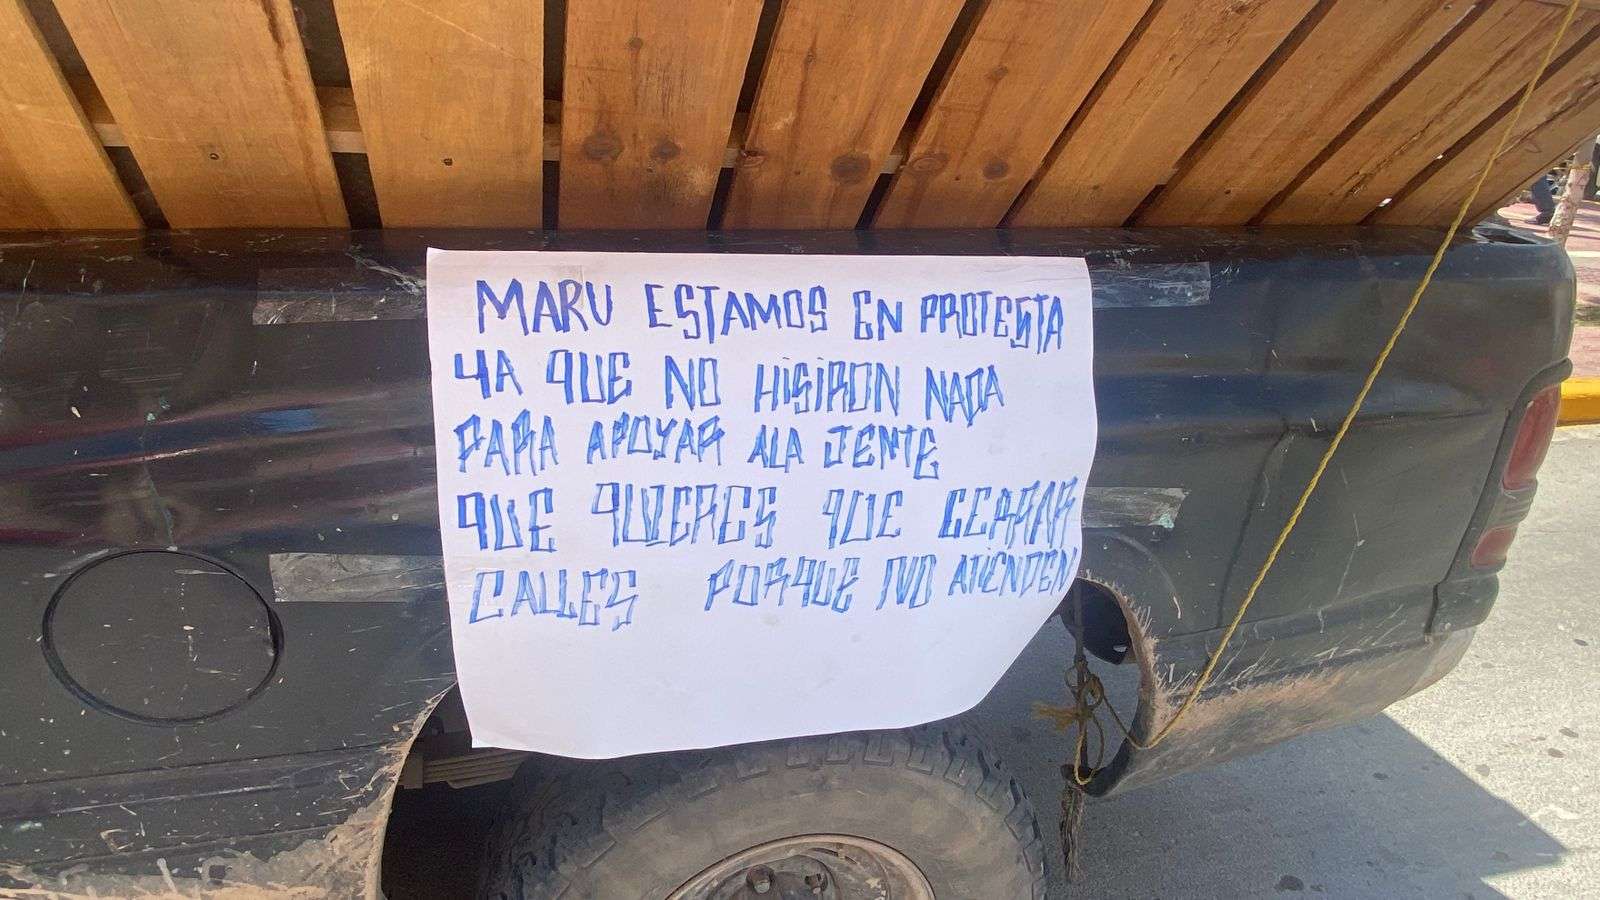 MARU ESTAMOS EN PROTESTA
YA QUE NO HISIRON NADA
PARA APOYAR ALA JENTE
QUE QUIERES QUE CERRAR
CALLES PORQUE NO ATIENDEN